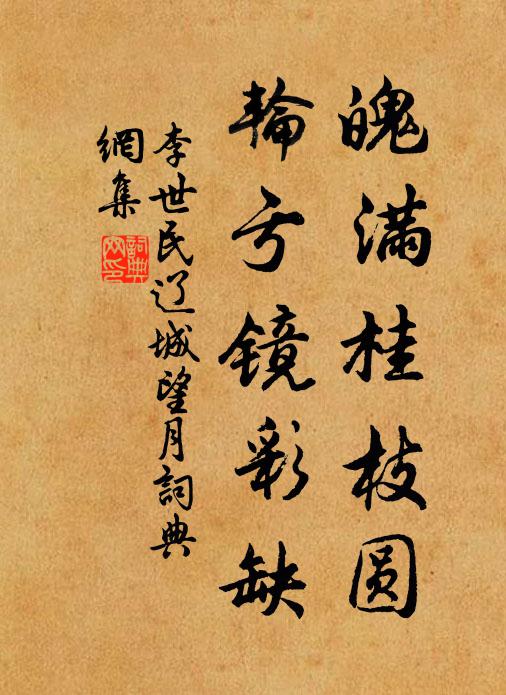 魄满桂枝圆
轮亏镜彩缺
李世民辽城望月词典
網集
词典网印